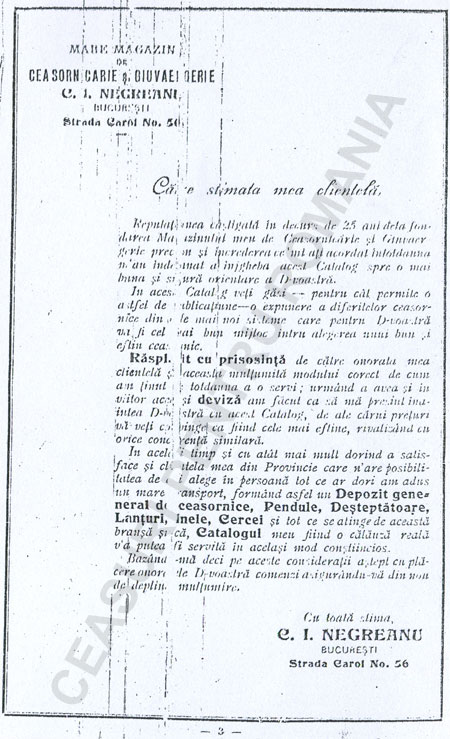 MARE MAGAZIN
DE
CEASORNICARIE și GIUVAERGERIE
C. I. NEGREANU
BUCUREȘTI
Strada Carol No. 56
Către stimata mea clientelă,
Reputațiunea câștigată în decurs de 25 ani dela fon-
darea Magazinului meu de Ceasornicărie și Giuvaer-
gerie precum și încrederea ce mi'ați acordat întotdauna
m'au îndemnat a înjgheba acest Catalog spre o mai
bună și sigură orientare a D-voastră.
In acest Catalog veți găsi — pentru cât permite o
astfel de publicațiune— o expunere a diferitelor ceasor-
nice din cele mai noi sisteme care pentru D-voastră
vă fi cel mai bun mijloc întru alegerea unui bun și
eftin ceasornic.
Răsplătit cu prisosință de către onorata mea
clientelă și aceasta mulțumită modului corect de cum
am ținut totdauna a o servi; urmând a avea și in
viitor aceași deviză am făcut ca să mă prezint îna-
intea D-voastră cu acest Catalog, de ale cărui prețuri
vă veți convinge ca fiind cele mai eftine, rivalizând cu
orice concurență similară.
In acelaș timp și cu atât mai mult dorind a satis-
face și clientela mea din Provincie care n'are posibili-
tatea de a alege în persoană tot ce ar dori am adus
un mare transport, formând asfel un Depozit gene-
neral de ceasornice, Pendule, Deșteptătoare,
Lanțuri, Inele, Cercei și tot ce se atinge de această
branșă și că, Catalogul meu fiind o călăuză reală
vă putea fi servită in același mod conștiincios.
Bazându-mă deci pe aceste considerații aștept cu plă-
cere onoratele D-voastră comenzi asigurându-vă din nou
de deplină mulțumire.
Cu toată stima,
C. I. NEGREANU
BUCUREȘTI
Strada Carol No. 56
— 3 —
CEASURI DIN ROMANIA